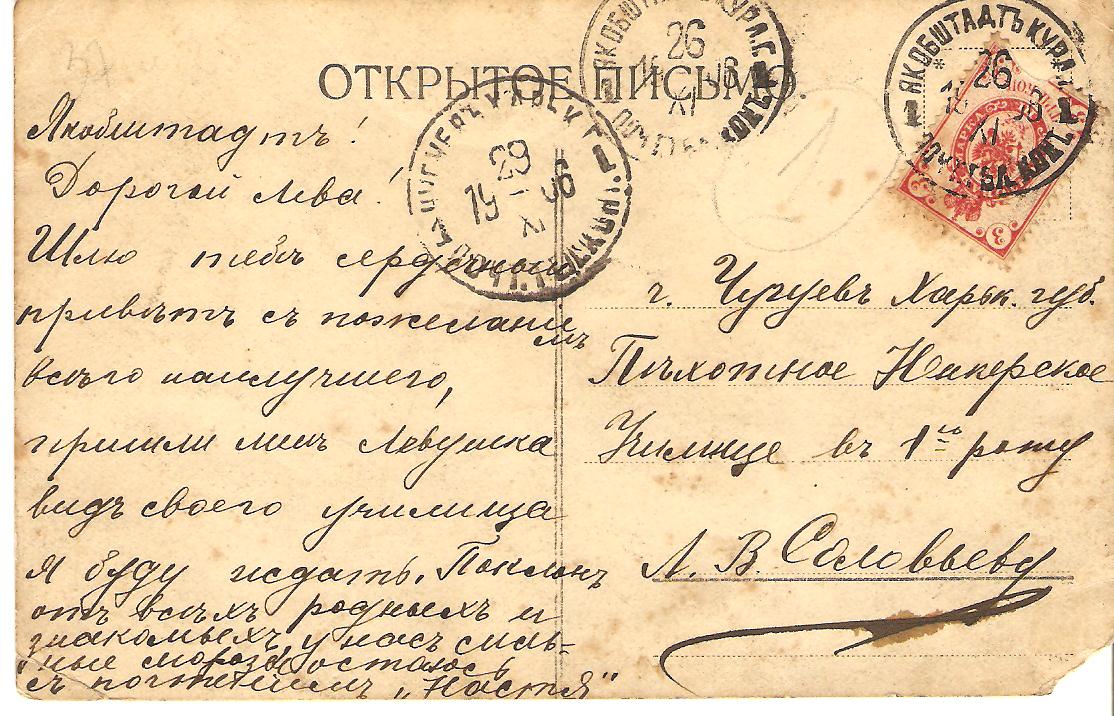 ОТКРЫТОЕ ПИСЬМО.
ЯКОБШТАДТЪ КУРЛ. Г.
26
XI
06
ЯКОБШТАДТЪ КУРЛ. Г.
26
XI
06
1
29
19 - 06
XI
3
3
Якобштадтъ!
Дорогой Лева!
Шлю тебѣ сердечный
привѣтъ съ пожеланi
мъ
всего наилучшего,
пришли мнѣ Левушка
видъ своего училища
Я буду ждать. Поклонъ
отъ всѣхъ родныхъ и
знакомыхъ, у насъ силь-
ные морозы остаюсь
съ почтенiемъ "Настя"
г. Чугуевъ Харьк. губ.
Пѣхотное Юнкерское
Училище въ 1ую роту
Л. В. Соловьеву